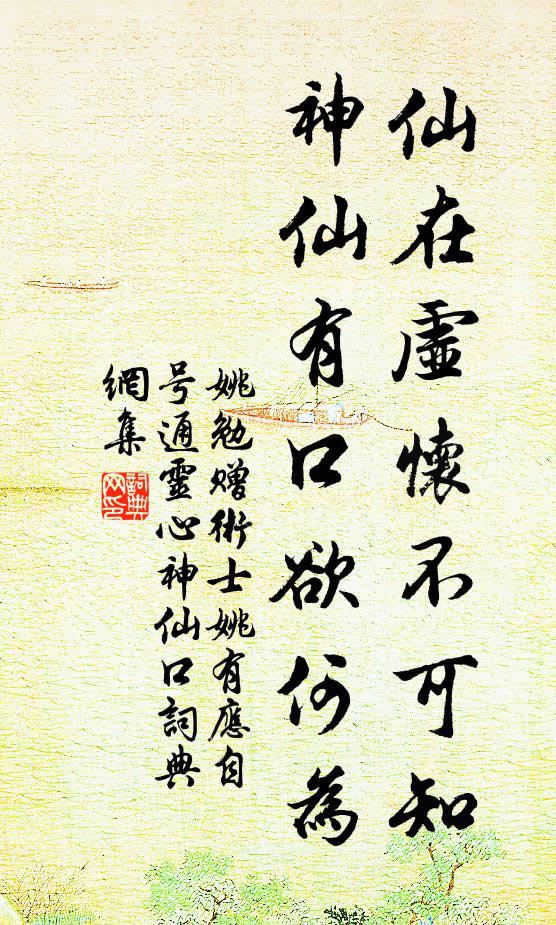 仙在虛懷不可知
神仙有口欲何為
姚勉贈術士姚有應自
号通靈心神仙口詞典
網集
詞典
网印